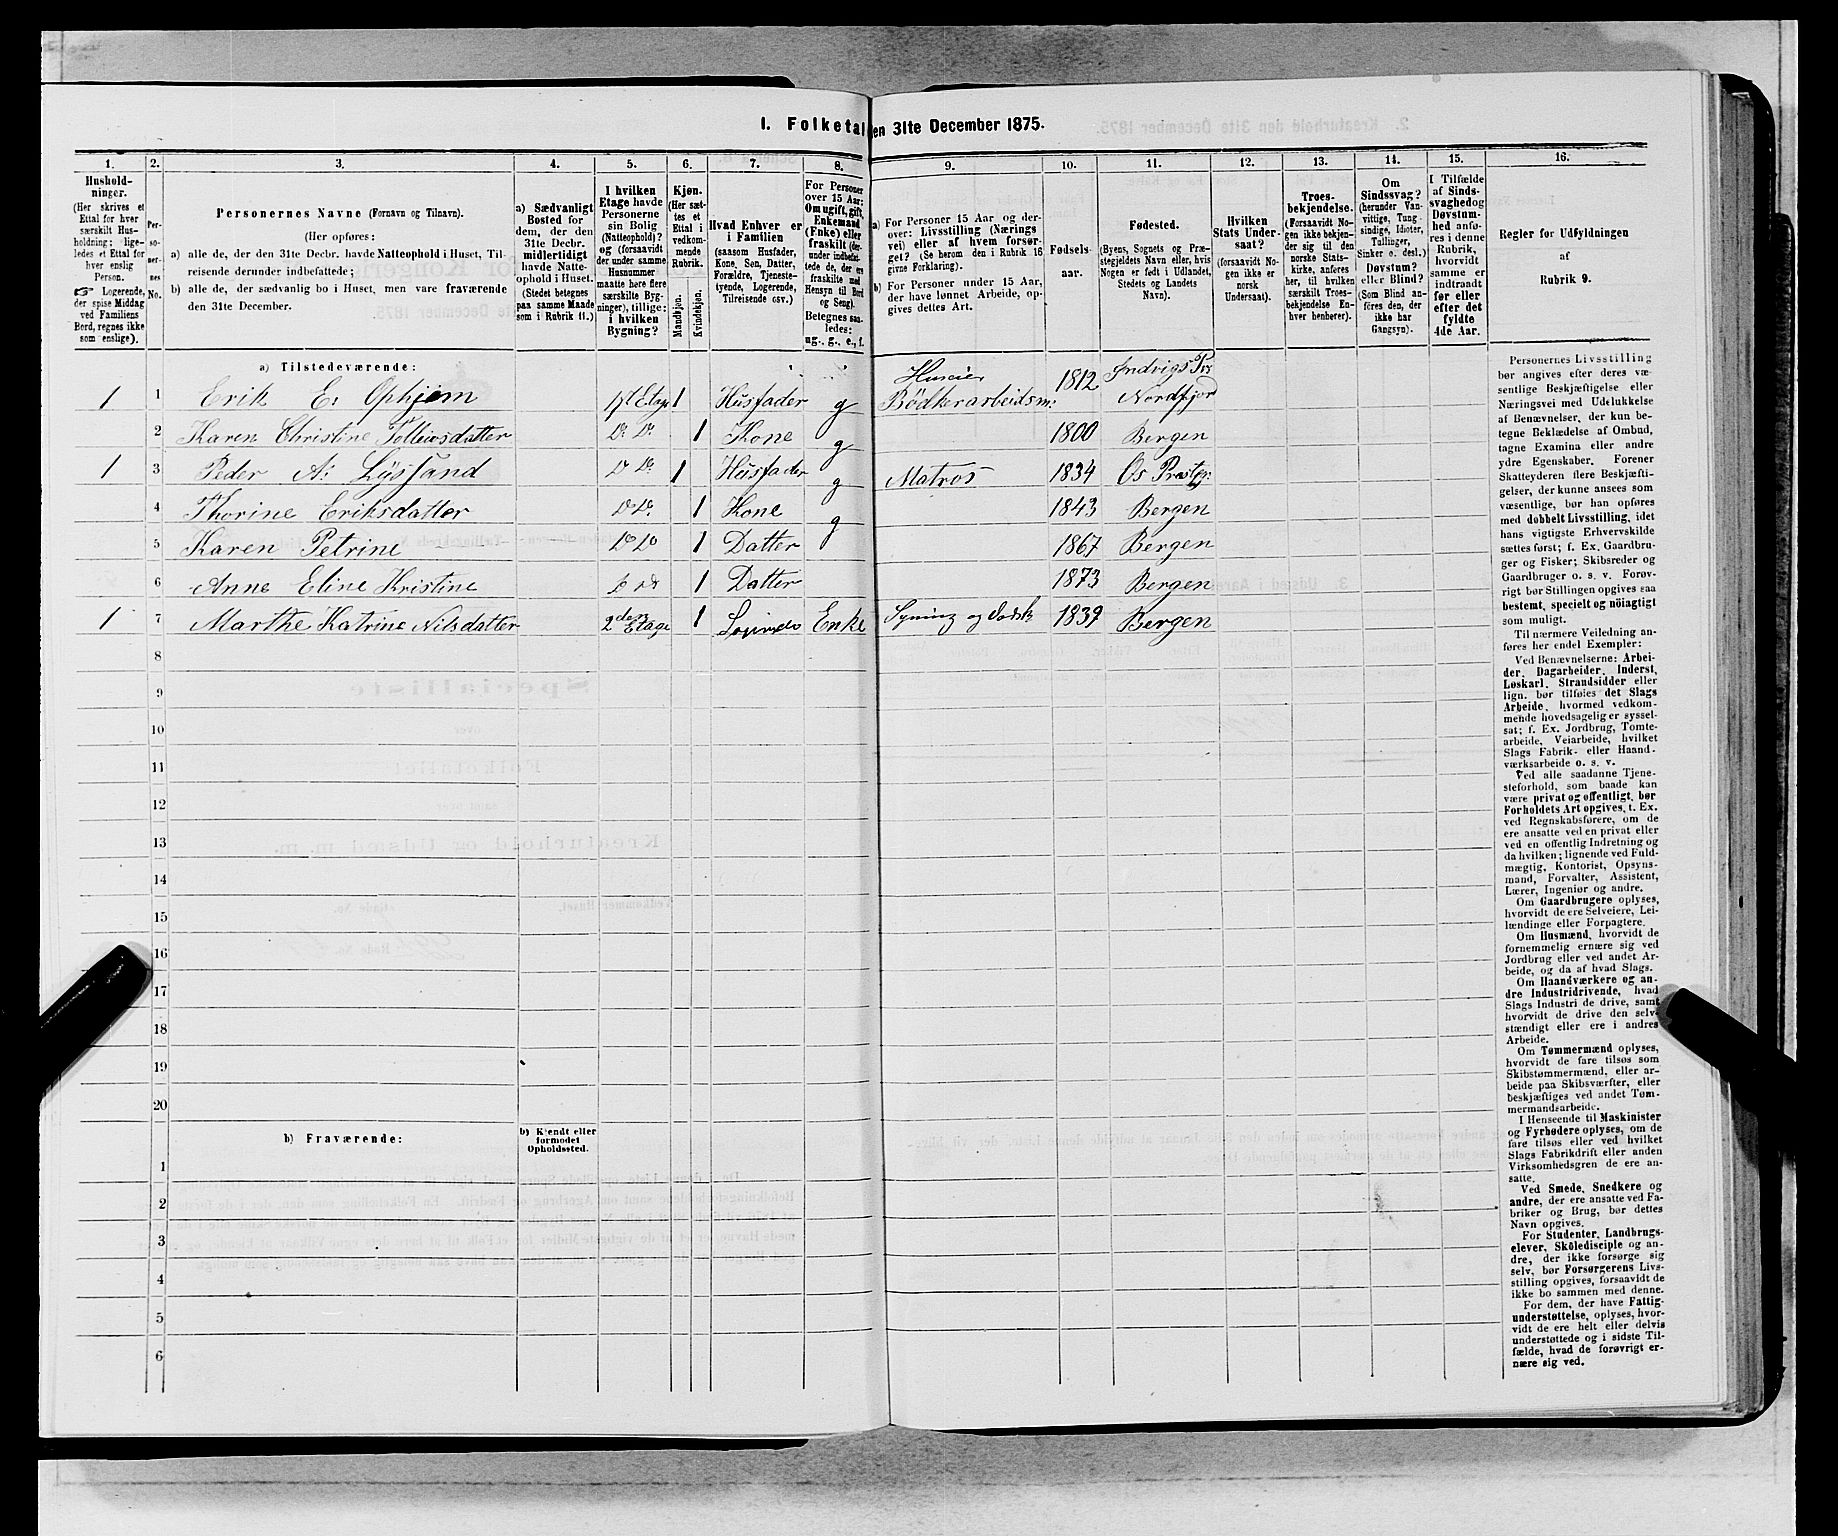 1. Folketal den 31te December 1875.
1.
Hushold-
ninger.
(Her skrives et
Ettal for hver
særskilt Hus-
holdning; lige-
ledes et Ettal for
hver enslig
Person.
☞ Logerende,
der spise Middag
ved Familiens
Bord, regnes ikke
som enslige).
2.
Per-
so-
ner-
nes
No.
3.
Personernes Navne (Fornavn og Tilnavn).
(Her opføres:
a) alle de, der den 31te Decbr. havde Natteophold i Huset, Til-
reisende derunder indbefattede;
b) alle de, der sædvanlig bo i Huset, men vare fraværende
den 31te December.
4.
a) Sædvanligt
Bosted for
dem, der den
31te Decbr.
midlertidigt
havde Natte-
ophold i Huset.
(Stedet betegnes
paa samme Maade
som i Rubrik 11.)
5.
I hvilken
Etage havde
Personerne
sin Bolig
(Natteophold)?
og (forsaavidt
der under samme
Husnummer
maatte høre flere
særskilte Byg-
ninger), tillige:
i hvilken
Bygning?
6.
Kjøn.
(Her sæt-
tes et
Ettal i
vedkom-
mende
Rubrik.
Mandkjøn.
Kvindekjøn.
7.
Hvad Enhver er
i Familien
(saasom Husfader,
Kone, Søn, Datter,
Forældre, Tjeneste-
tyende, Logerende,
Tilreisende osv.)
8.
For Personer
over 15 Aar:
Om ugift, gift,
Enkemand
(Enke) eller
fraskilt (der-
under indbefat-
tede de, der ere
fraskilte med
Hensyn til Bord
og Seng).
Betegnes saa-
ledes:
ug., g., e., f.
9.
a) For Personer 15 Aar og der-
over: Livsstilling (Nærings
vei) eller af hvem forsør-
get? (Se herom den i Rubrik 16
givne Forklaring).
b) For Personer under 15 Aar,
der have lønnet Arbeide, op-
gives dettes Art.
10.
Fødsels-
aar.
11.
Fødested.
(Byens, Sognets og Præ-
stegjeldets Navn eller, hvis
Nogen er født i Udlandet,
Stedets og Landets
Navn).
12.
Hvilken
Stats Under-
saat?
(forsaavidt No-
gen ikke er
norsk
Undersaat).
13.
Troes-
bekjendelse.
(Forsaavidt No-
gen ikke bekjen-
der sig til den
norske Stats-
kirke, anføres
her, til hvilken
særskilt Troes-
bekjendelse En-
hver henhører).
14.
Om
Sindssvag?
(herunder Van-
vittige, Tung-
sindige, Idioter,
Tullinger,
Sinker o. desl.).
Døvstum?
eller Blind?
(Som Blind an-
føres den, der
ikke har
Gangsyn).
15.
I Tilfælde
af Sinds-
svaghed og
Døvstum-
hed anfø-
res i denne
Rubrik,
hvorvidt
samme er
indtraadt
før eller
efter det
fyldte
4de Aar.
16.
Regler for Udfyldningen
af
Rubrik 9.
a) Tilstedeværende:
1 1 Erik E. Ophjem 1st Etage 1 Husfader g Huseier Bødkerarbeidsm: 1812 Indvigs Prg Nordfjord
2 Karen Christine Tolleivsdatter Do Do. 1 Kone g 1800 Bergen
1 3 Peder A: Lyssand Do Do. 1 Husfader g Matros 1834 Os Præstgj:
4 Thorine Eriksdatter Do Do. 1 Kone g 1843 Bergen
5 Karen Petrine Do Do 1 Datter 1867 Bergen
6 Anne Eline Kristine 1 Datter 1873 Bergen
1 7 Marthe Katrine Nilsdatter 2den Etage 1 Enke Syning og Vadsk 1839 Bergen
8
9
10
11
12
13
14
15
16
17
18
19
20
b) Fraværende:
b) Kjendt eller
formodet
Opholdssted.
1
2
3
4
5
6
Personernes Livsstilling
bør angives efter deres væ-
sentlige Beskjæftigelse eller
Næringsvei med Udelukkelse
af Benævnelser, der kun be-
tegne Beklædelse af Ombud,
tagne Examina eller andre
ydre Egenskaber. Forener
Skatteyderen flere Beskjæfti-
gelser, der kunne ansees som
væsentlige, bør han opføres
med dobbelt Livsstilling, idet
hans vigtigste Erhvervskilde
sættes først; f. Ex. Gaardbru-
ger og Fisker; Skibsreder og
Gaardbruger o. s. v. Forøv-
rigt bør Stillingen opgives saa
bestemt, specielt og nöiagtigt
som muligt.
Til nærmere Veiledning an-
føres her endel Exempler:
Ved Benævnelserne: Arbei-
der, Dagarbeider, Inderst,
Løskarl, Strandsidder eller
lign. bør tilføies det Slags
Arbeide, hvormed vedkom-
mende hovedsagelig er syssel-
sat; f. Ex. Jordbrug, Tomte-
arbeide, Veiarbeide, hvilket
Slags Fabrik- eller Haand-
værksarbeide o. s. v.
Ved alle saadanne Tjene-
steforhold, som baade kan
være privat og offentligt, bør
Forholdets Art opgives, t. Ex.
ved Regnskabsførere, om de
ere ansatte ved en privat eller
ved en offentlig Indretning og
da hvilken; lignende ved Fuld-
mægtig, Kontorist, Opsyns-
mand, Forvalter, Assistent,
Lærer, Ingeniør og andre.
Om Gaardbrugere oplyses,
hvorvidt de ere Selveiere, Lei-
lændinge eller Forpagtere.
Om Husmænd, hvorvidt de
fornemmelig ernære sig ved
Jordbrug eller ved andet Ar-
beide, og da af hvad Slags.
Om Haandværkere og an-
dre Industridrivende, hvad
Slags Industri de drive, samt
hvorvidt de drive den selv-
stændigt eller ere i andres
Arbeide.
Om Tømmermænd oplyses,
hvorvidt de fare tilsøs som
Skibstømmermænd, eller ar-
beide paa Skibsværfter, eller
beskjæftiges ved andet Tøm-
mermandsarbeide.
I Henseende til Maskinister
og Fyrbødere oplyses, om de
fare tilsøs eller ved hvilket
Slags Fabrikdrift eller anden
Virksomhedsgren de ere an-
satte.
Ved Smede, Snedkere og
andre, der ere ansatte ved Fa-
briker og Brug, bør dettes
Navn opgives.
For Studenter, Landbrugs-
elever, Skoledisciple og an-
dre, der ikke forsørge sig
selv, bør Forsørgerens Livs-
stilling opgives, forsaavidt de
ikke bo sammen med denne.
For dem, der have Fattig-
understøttelse, oplyses, hvor-
vidt de ere helt eller delvis
understøttede og i sidste Til-
fælde, hvad de forøvrigt er-
nære sig ved.